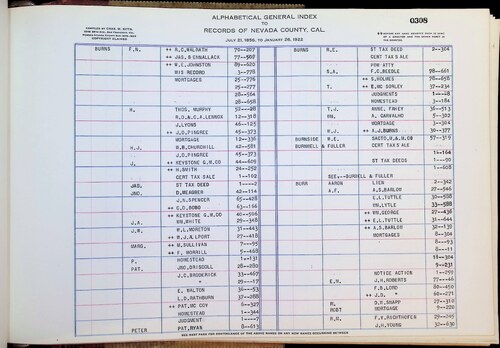 ALPHABETICAL GENERAL INDEX
TO
RECORDS OF NEVADA COUNTY, CAL.
JULY 21, 1856, TO JANUARY 26, 1923
0308
COPYRIGHT CLAIMED
BURNS F.N. ++ R.C. WALRATH 78--207
++ JAS. 77--507
++ W.E. JOHNSTON 89--620
MIS RECORD 3--778
MORTGAGES 25--776
25--277
28--564
28--658
H. THOS. MURPHY 52--28
N.D. & C.A. LENNOX 12--318
J. LYONS 46--125
++ J.O. PINGREE 45--373
MORTGAGE 12--336
H.J. W.B. CHURCHILL 42--581
J.O. PINGREE 45--373
J. ++ KEYSTONE G.M. CO 44--609
++ H. SMITH 24--252
CERT TAX SALE 1--102
JAS. ST TAX DEED 1---2
JNO. D. MEAGHER 42--114
J.N. SPENCER 65--428
++ C.D. BOBO 63--166
++ KEYSTONE G.M. CO 40--506
J.A. WM. WHITE 29--348
J.W. W.L. MORETON 31--443
++ M.J. A.L. PORT 27--418
MARG. ++ M. SULLIVAN 7--95
++ F. MORRILL 5--468
P. HOMESTEAD 1--131
PAT. JNO. DRISCOLL 28--280
J.C. BRODERICK 33--467
++ 29--17
E. WALTON 36--53
L.D. RATHBURN 37--288
++ PAT. MC COY 6--317
HOMESTEAD 1--344
JUDGMENT 1---7
PETER PAT. RYAN 8--613
BURNS R.E. ST TAX DEED 2--304
CERT TAX SALE
POW ATTY
S.A. F.C. BEEDLE 98--661
T. ++ D. HOLMES 78--658
++ E. MC SORLEY 37--234
JUDGMENTS 1--28
HOMESTEAD 3--184
T.J. ANNE. FAHEY 36--513
WM. A. CARVALHO 5--302
MORTGAGE 3--304
W.J. ++ A.J. BURNS 30--377
BURNSIDE W.E. SACTO.V.& M.CO 57--319
BURNWELL & FULLER CERT TAX SALE
1--166
ST TAX DEEDS 1--90
1--608
SEE--BURWELL & FULLER
BURR AARON LIEN 2--342
A.F. A.S. BARLOW 27--546
E.L. TUTTLE 33--588
WM. LYTLE 33--588
++ WM. GEORGE 27--436
++ E.L. TUTTLE 31--644
++ A.S. BARLOW 32--139
MORTGAGES 8--304
8--93
8--11
11--304
9--231
NOTICE ACTION 1--259
E.H. J.M. ROBERTS 27--46
F.B. LORD 80--458
++ J.D. 60--271
M. D.H. KNAPP 27--310
ROBT MORTGAGE 9--202
R.H. F.V. RICHTHOFEN 29--245
J.H. YOUNG 32--630